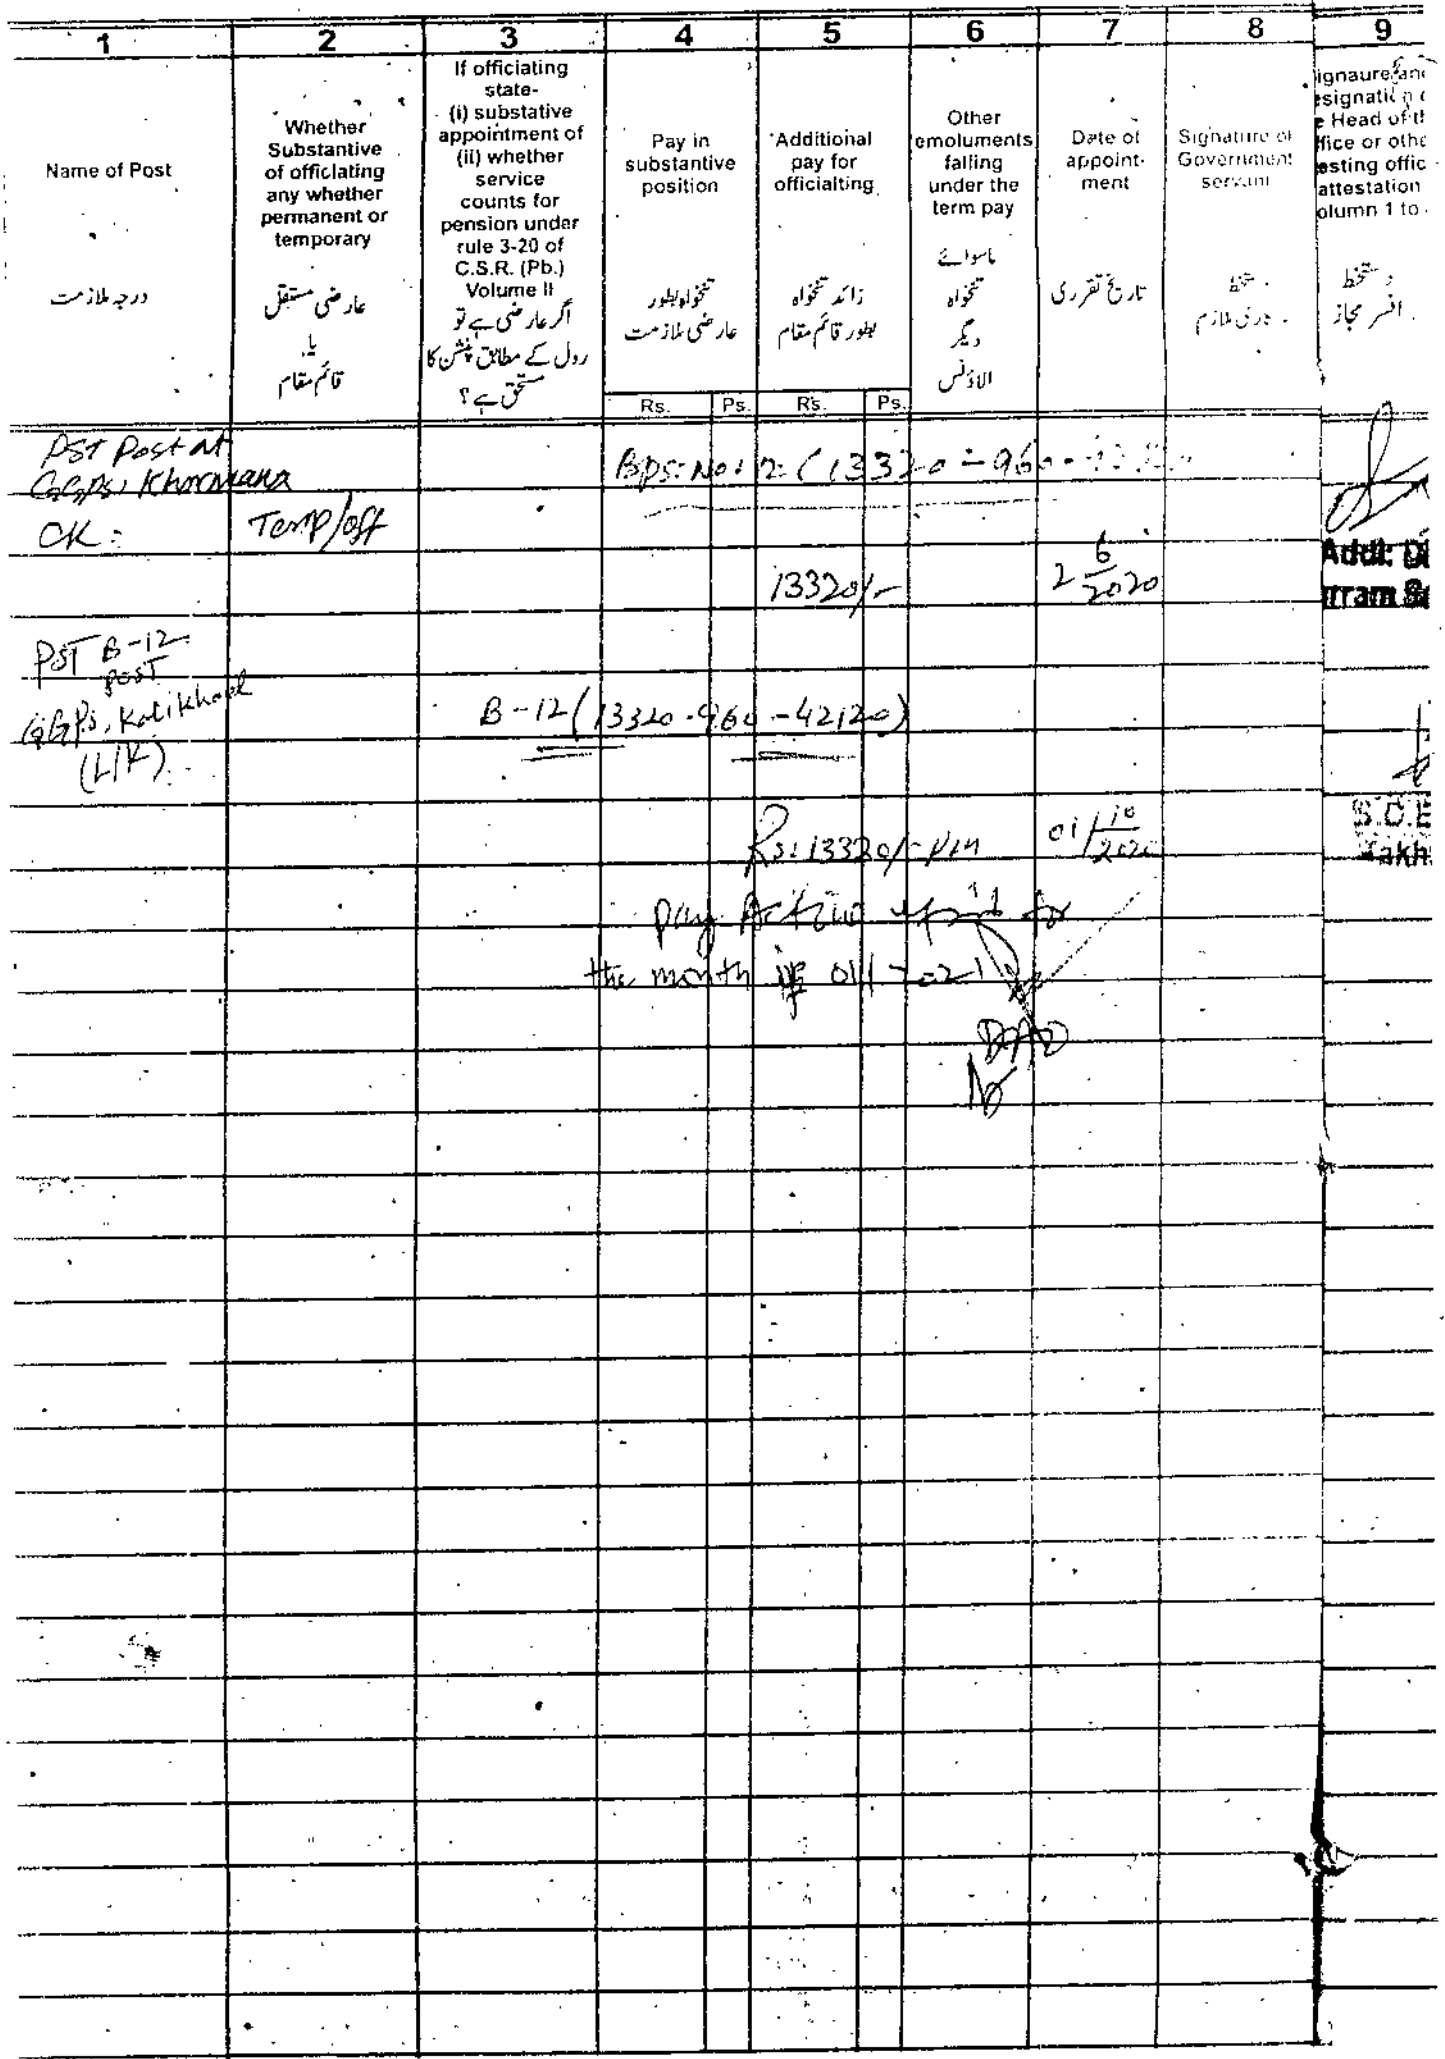 1 2 3 4 5 6 7 8 9
Name of Post
درجہ ملازمت
Whether
Substantive
of officlating
any whether
permanent or
temporary
عارضی مستقل
یا
قائم مقام
If officiating
state-
(i) substative
appointment of
(ii) whether
service
counts for
pension under
rule 3-20 of
C.S.R. (Pb.)
Volume II
اگر عارضی ہے تو
رول کے مطابق پنشن کا
مستحق ہے؟
Pay in
substantive
position
تنخواہ بطور
عارضی ملازمت
Rs. Ps.
Additional
pay for
officialting
زائد تنخواہ
بطور قائم مقام
Rs. Ps.
Other
emoluments
falling
under the
term pay
ماسوائے
تنخواہ
دیگر
الاؤنس
Date of
appoint-
ment
تاریخ تقرری
Signature of
Government
servant
ملازم
ignaure and
esignati
e Head of th
ffice or othe
esting offic
attestation
olumn 1 to
دستخط
افسر مجاز
PST Post at
GGPS, Khormana
CK:
Temp/off
BPS: No: 12 (13320 - 960 -
13320/-
2 6/2020
Addl: Di
rram
PST B-12
POST
GGPS, Kalikhael
(L/K)
B-12 (13320 - 960 - 42120)
Rs: 13320/- P/M
01/10/2020
S.D.E
akh
pay
the month of 01/2021